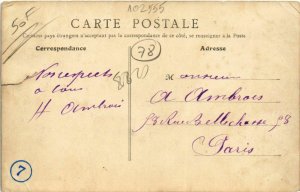 A02955
CARTE POSTALE
Tous les pays étrangers n'acceptant pas la correspondance de ce côté, se renseigner à la Poste
Correspondance
Adresse
78
Mes respects
à tous
H Ambrois
Monsieur
A Ambrois
58 Rue Bellechasse 58
Paris
7